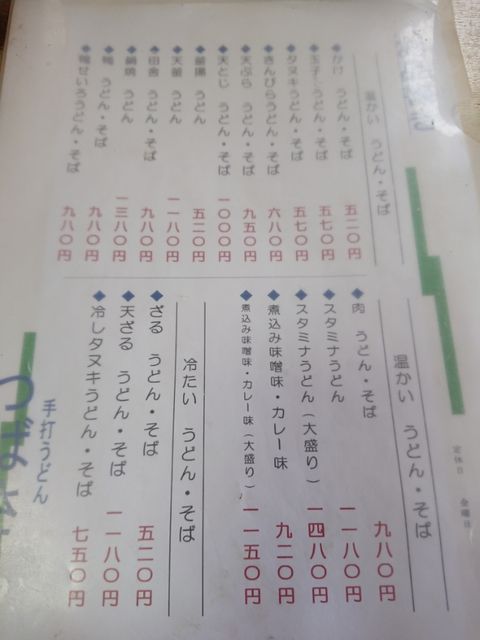 温かい うどん・そば
◆かけ うどん・そば 五二〇円
◆玉子とじうどん・そば 五七〇円
◆タヌキうどん・そば 五七〇円
◆きんぴらうどん・そば 六八〇円
◆天ぷら うどん・そば 九五〇円
◆天とじ うどん・そば 一〇〇〇円
◆釜揚 うどん 五二〇円
◆天釜 うどん 一一八〇円
◆田舎 うどん・そば 九八〇円
◆鍋焼 うどん 一三八〇円
◆鴨 うどん・そば 九八〇円
◆鴨せいろうどん・そば 九八〇円
温かい うどん・そば
◆肉 うどん・そば 九八〇円
◆スタミナうどん 一一八〇円
◆スタミナうどん(大盛り) 一四八〇円
◆煮込み味噌味・カレー味 九二〇円
◆煮込み味噌味・カレー味(大盛り) 一一五〇円
冷たい うどん・そば
◆ざる うどん・そば 五二〇円
◆天ざる うどん・そば 一一八〇円
◆冷しタヌキうどん・そば 七五〇円
定休日 金曜日
手打うどん